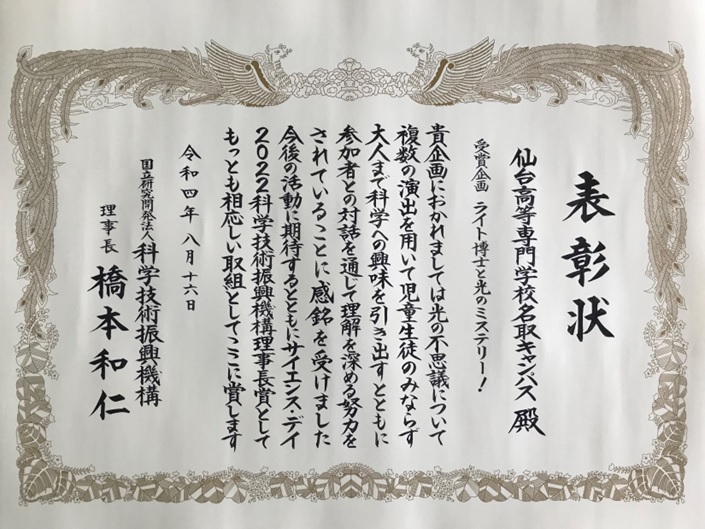 表彰状
仙台高等専門学校名取キャンパス 殿
受賞企画 ライト博士と光のミステリー!
貴企画におかれましては光の不思議について
複数の演出を用いて児童生徒のみならず
大人まで科学への興味を引き出すとともに
参加者との対話を通じて理解を深める努力を
されていることに感銘を受けました
今後の活動に期待するとともにサイエンス・デイ
2022科学技術振興機構理事長賞として
もっとも相応しい取組としてここに賞します
令和四年 八月十六日
国立研究開発法人 科学技術振興機構
理事長 橋本和仁